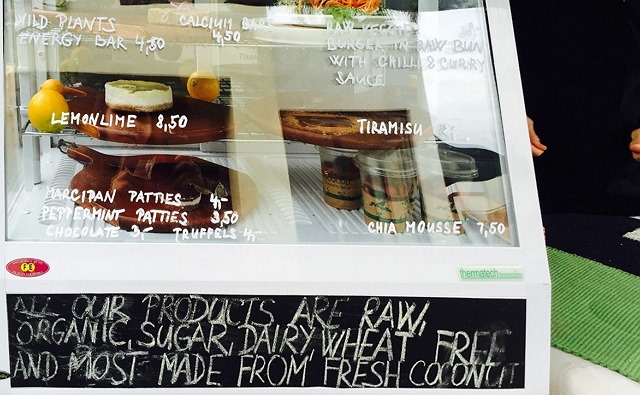 WILD PLANTS
ENERGY BAR 4,50
CALCIUM BAR
4,50
BURGER IN RAW BUN
WITH CHILLI & CURRY
SAUCE
LEMONLIME 8,50
TIRAMISU
MARCIPAN PATTIES 4,-
PEPPERMINT PATTIES 3,50
CHOCOLATE 3,- TRUFFELS 4,-
CHIA MOUSSE 7,50
thermatech
ALL OUR PRODUCTS ARE RAW,
ORGANIC, SUGAR, DAIRY WHEAT FREE
AND MOST MADE FROM FRESH COCONUT